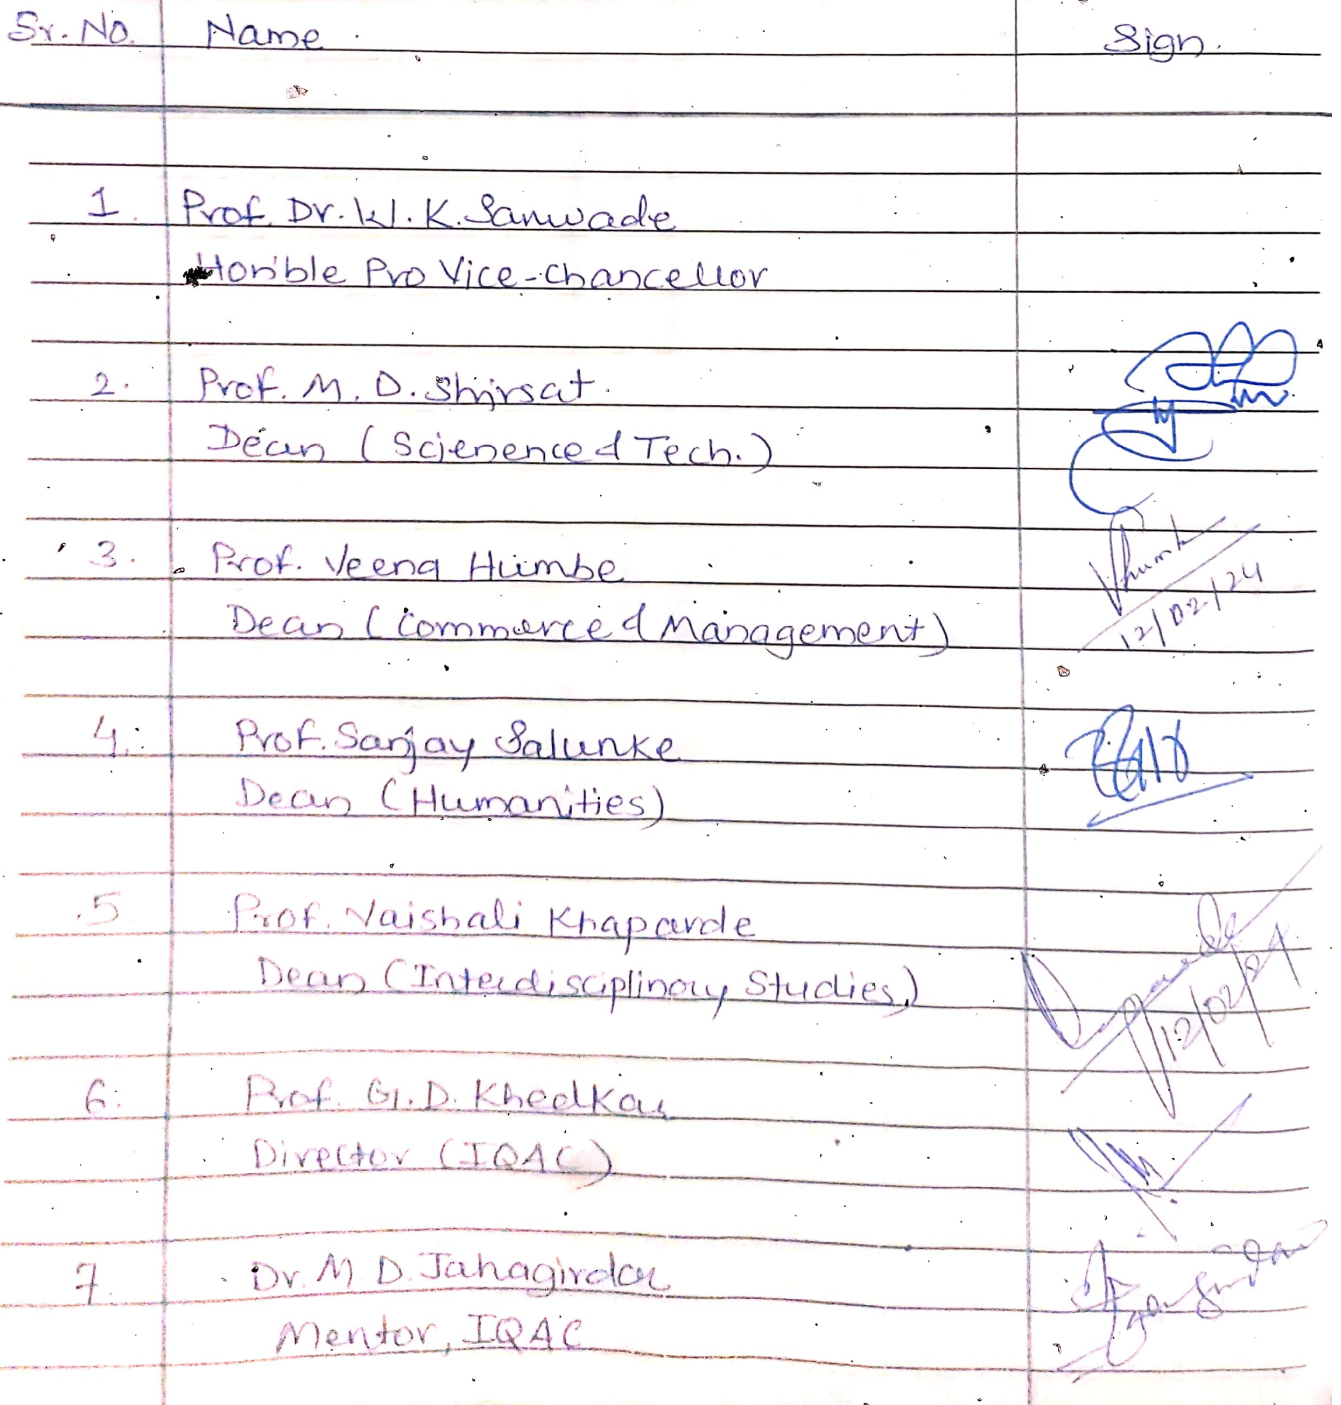 Sr. No. Name Sign.
1. Prof. Dr. W. K. Sarwade
Hon'ble Pro Vice-Chancellor
2. Prof. M. D. Shirsat.
Dean (Scienence & Tech.)
3. Prof. Veena Humbe
12/02/24
Dean (Commerce & Management)
4. Prof. Sanjay Salunke
Dean (Humanities)
5 Prof. Vaishali Khaparde
Dean (Interdisciplinary Studies)
12/02/24
6. Prof. G. D. Khedkar
Director (IQAC)
7. Dr. M D. Jahagirdar
Mentor, IQAC